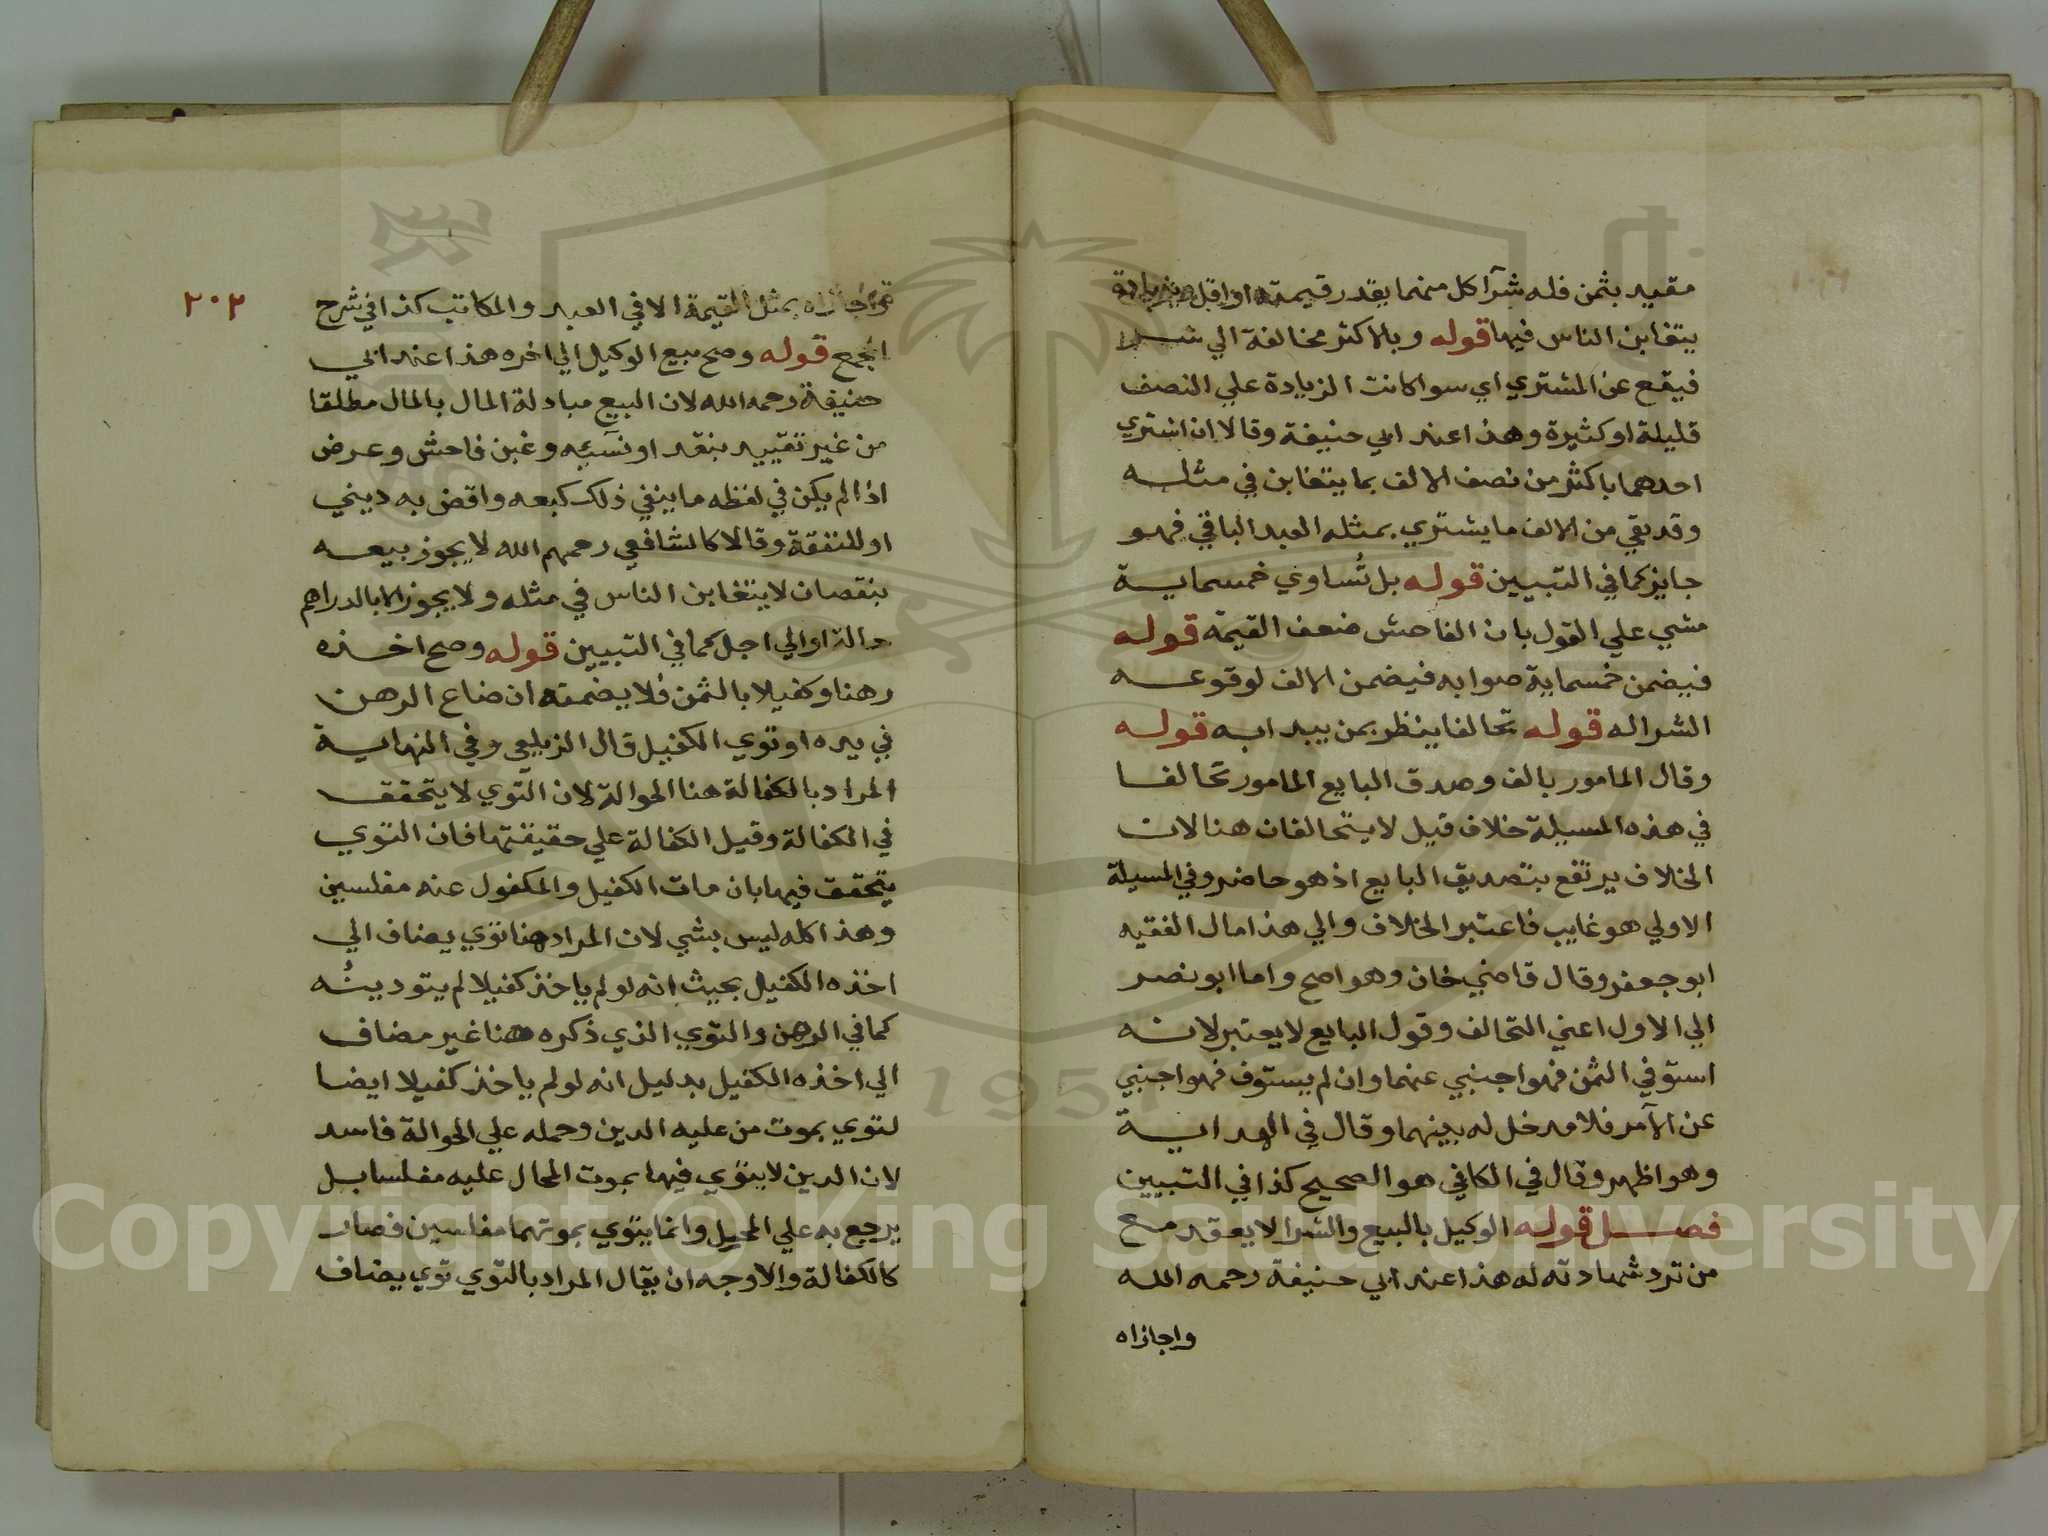 مقيد بثمن فله شرآ كل منهما بقدر قيمته او اقل وبزيادة
يتغابن الناس فيها قوله وبالاكثر مخالفة الي شرا
فيقع عن المشتري اي سوا كانت الزيادة علي النصف
قليلة او كثيرة وهذا عند ابي حنيفة وقالا ان اشتري
احدهما باكثر من نصف الالف بما يتغابن في مثله
وقد بقي من الالف ما يشتري بمثله العبد الباقي فهو
جايز كما في التبيين قوله بل تُساوي خمسماية
مشي علي القول بان الفاحش ضعف القيمة قوله
فيضمن خمسماية صوابه فيضمن الالف لوقوعه
الشرا له قوله تحالفا ينظر بمن يبدا به قوله
وقال المامور بالف وصدق البايع المامور تحالفا
في هذه المسيلة خلاف قيل لا يتحالفان هنا لان
الخلاف يرتفع بتصديق البايع اذ هو حاضر وفي المسيلة
الاولي هو غايب فاعتبر الخلاف والي هذا مال الفقيه
ابو جعفر وقال قاضي خان وهو اصح واما ابو نصر
الي الاول اعني التحالف وقول البايع لا يعتبر لانه
استوفي الثمن فهو اجنبي عنهما وان لم يستوف فهو اجنبي
عن الآمر فلا مدخل له بينهما وقال في الهداية
وهو اظهر وقال في الكافي هو الصحيح كذا في التبيين
فصل قوله الوكيل بالبيع والشرا لا يعقد مع
من ترد شهادته له هذا عند ابي حنيفة رحمه الله
واجازاه
٢٠٢
واجازاه بمثل القيمة الا في العبد والمكاتب كذا في شرح
المجمع قوله وصح بيع الوكيل الي اخره هذا عند ابي
حنيفة رحمه الله لان البيع مبادلة المال بالمال مطلقا
من غير تقييد بنقد او نسيئه وغبن فاحش وعرض
اذا لم يكن في لفظه ما ينفي ذلك كبعه واقض به ديني
او للنفقة وقالا كالشافعي رحمهم الله لا يجوز بيعه
بنقصان لا يتغابن الناس في مثله ولا يجوز الا بالدراهم
حالة او الي اجل كما في التبيين قوله وصح اخذه
رهنا وكفيلا بالثمن فلا يضمنه ان ضاع الرهن
في يده او توي الكفيل قال الزيلعي وفي النهاية
المراد بالكفالة هنا الحوالة لان التوي لا يتحقق
في الكفالة وقيل الكفالة علي حقيقتها فان التوي
يتحقق فيها بان مات الكفيل والمكفول عنه مفلسين
وهذا كله ليس بشي لان المراد هنا توي يضاف الي
اخذه الكفيل بحيث انه لو لم ياخذ كفيلا لم يتو دينُه
كما في الرهن والتوي الذي ذكره هنا غير مضاف
الي اخذه الكفيل بدليل انه لو لم ياخذ كفيلا ايضا
لتوي بموت من عليه الدين وحمله علي الحوالة فاسد
لان الدين لا يتوي فيها بموت المحال عليه مفلسا بل
يرجع به علي المحيل وانما يتوي بموتهما مفلسين فصار
كالكفالة والاوجه ان يقال المراد بالتوي توي يضاف
1957
Copyright © King Saud University